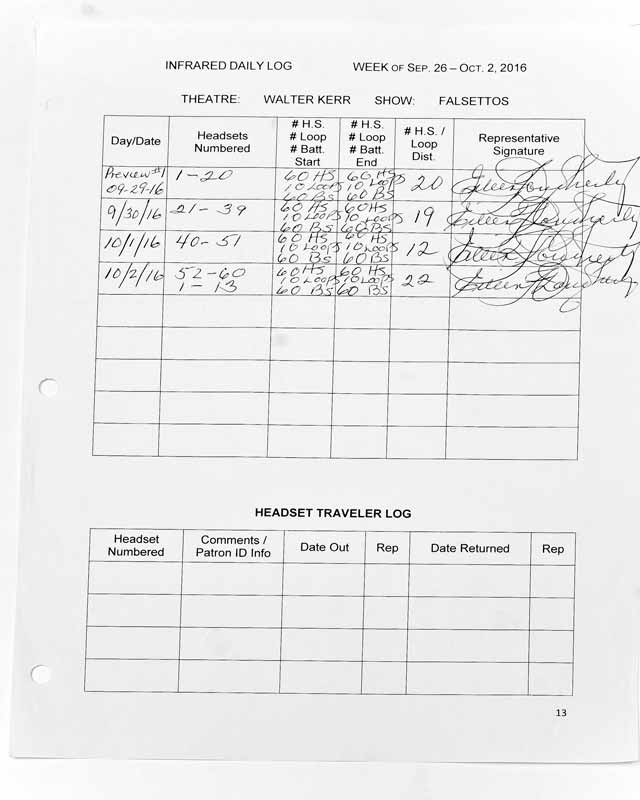 INFRARED DAILY LOG WEEK OF SEP. 26 – OCT. 2, 2016
THEATRE: WALTER KERR SHOW: FALSETTOS
Day/Date
Headsets
Numbered
# H.S.
# Loop
# Batt.
Start
# H.S.
# Loop
# Batt.
End
# H.S. /
Loop
Dist.
Representative
Signature
Preview #1
09-29-16
1-20
60 HS
10 Loops
60 BS
60 HS
10 Loops
60 BS
20
Eileen Dougherty
9/30/16
21-39
60 HS
10 Loops
60 BS
60 HS
10 Loops
60 BS
19
Eileen Dougherty
10/1/16
40-51
60 HS
10 Loops
60 BS
60 HS
10 Loops
60 BS
12
Eileen Dougherty
10/2/16
52-60
1-13
60 HS
10 Loops
60 BS
60 HS
10 Loops
60 BS
22
Eileen Dougherty
HEADSET TRAVELER LOG
Headset
Numbered
Comments /
Patron ID Info
Date Out
Rep
Date Returned
Rep
13